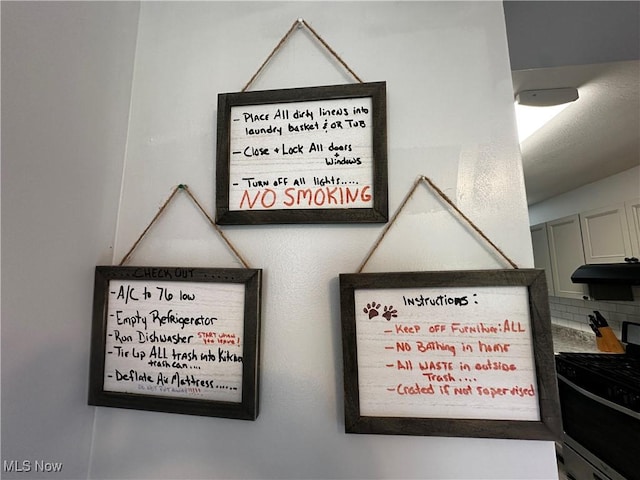 - PLACE All dirty linens into
laundry basket & OR TUB
- Close + Lock All doors
+ Windows
- Turn off All lights.....
NO SMOKING
CHECK OUT
- A/C to 76 low
- Empty Refrigerator
- Run Dishwasher START when you leave!
- Tie Up ALL trash into Kitchen
trash can....
- Deflate Air Mattress.....
Instructions :
- KEEP OFF Furniture: ALL
- NO Bathing in home
- All WASTE in outside
Trash....
- Crated if not supervised
MLS Now